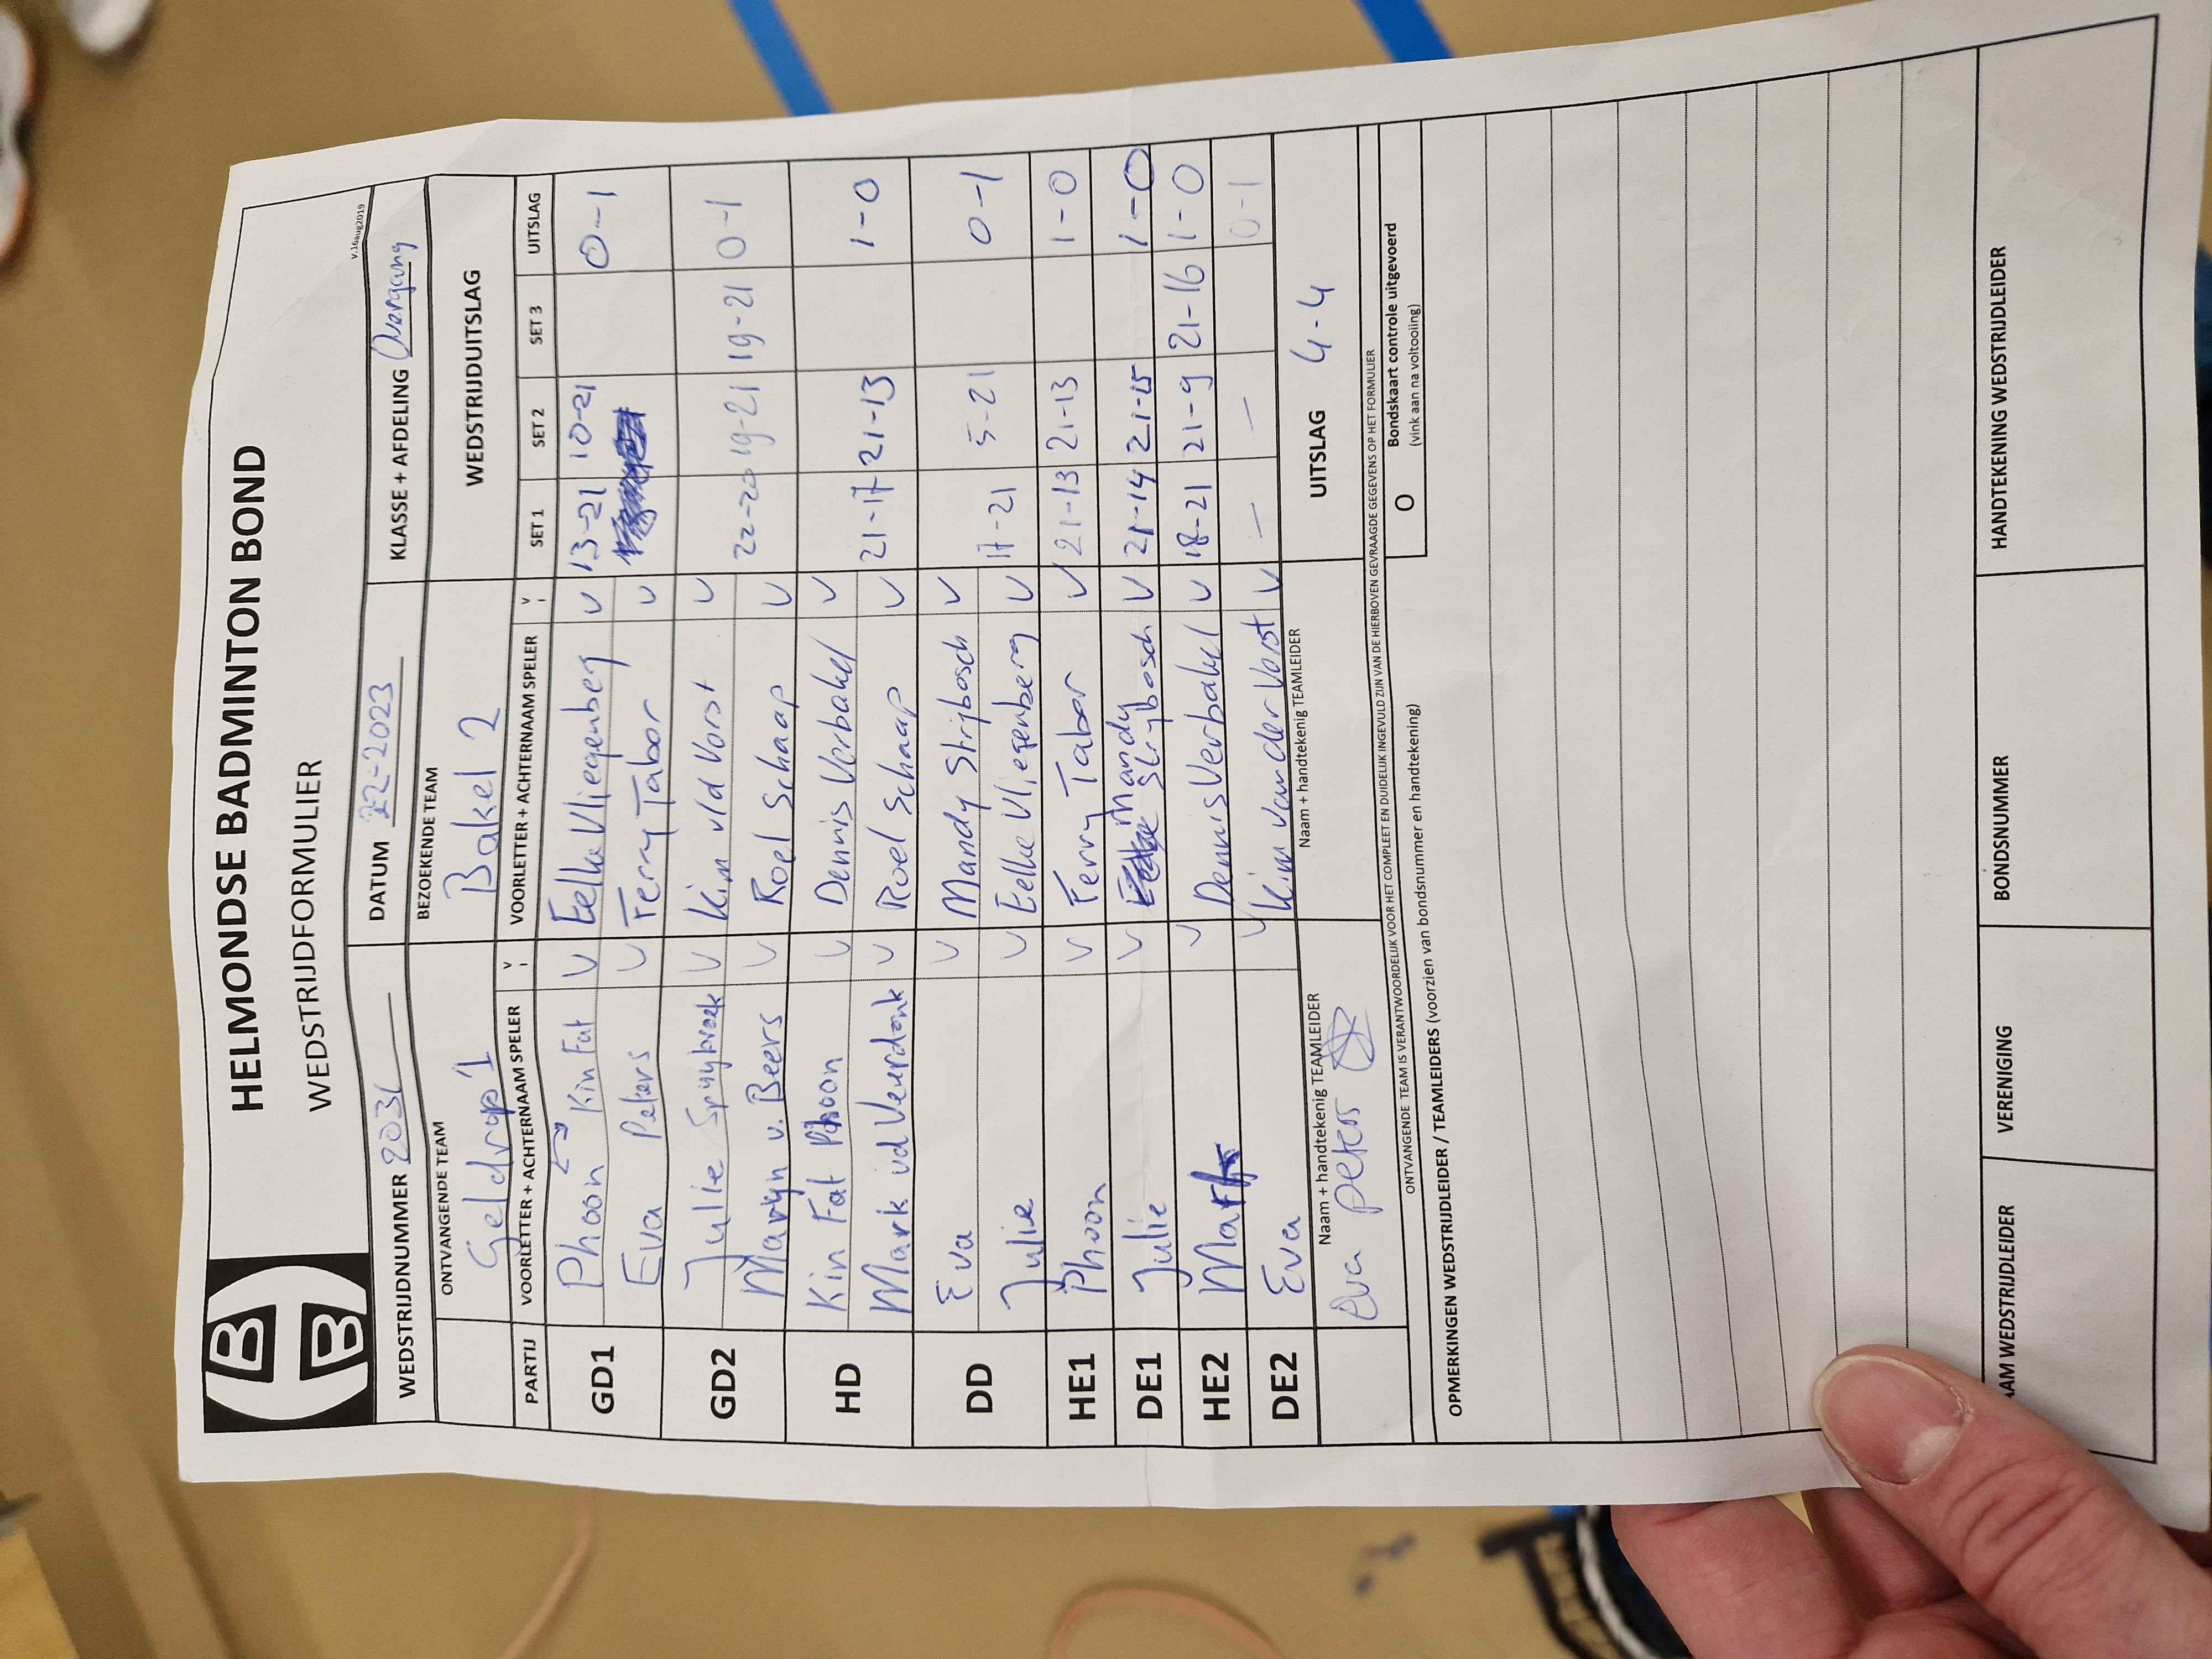 HELMONDSE BADMINTON BOND
WEDSTRIJDFORMULIER
v.16aug2019
WEDSTRIJDNUMMER 2031 DATUM 22-2023 KLASSE + AFDELING Overgang
ONTVANGENDE TEAM BEZOEKENDE TEAM WEDSTRIJDUITSLAG
Geldrop 1 Bakel 2
PARTIJ VOORLETTER + ACHTERNAAM SPELER V VOORLETTER + ACHTERNAAM SPELER V SET 1 SET 2 SET 3 UITSLAG
GD1 Phoon Kin Fat V Eelke Vliegenberg V 13-21 10-21 0-1
Eva Peters V Ferry Tabor V
GD2 Julie Spuybroek V Kim v/d Vorst V 22-20 19-21 19-21 0-1
Maryn v. Beers V Roel Schaap V
HD Kin Fat Phoon V Dennis Verbakel V 21-17 21-13 1-0
Mark vd Veurdonk V Roel Schaap V
DD Eva V Mandy Strijbosch V 17-21 5-21 0-1
Julie V Eelke Vliegenberg V
HE1 Phoon V Ferry Tabor V 21-13 21-13 1-0
DE1 Julie V Mandy Strijbosch V 21-14 21-15 1-0
HE2 Mark V Dennis Verbakel V 18-21 21-9 21-16 1-0
DE2 Eva V Kim van der Vorst V - - 0-1
Naam + handtekenig TEAMLEIDER Naam + handtekenig TEAMLEIDER UITSLAG 4-4
Eva peters
ONTVANGENDE TEAM IS VERANTWOORDELIJK VOOR HET COMPLEET EN DUIDELIJK INGEVULD ZIJN VAN DE HIERBOVEN GEVRAAGDE GEGEVENS OP HET FORMULIER
O Bondskaart controle uitgevoerd
(vink aan na voltooling)
OPMERKINGEN WEDSTRIJDLEIDER / TEAMLEIDERS (voorzien van bondsnummer en handtekening)
AAM WEDSTRIJDLEIDER VERENIGING BONDSNUMMER HANDTEKENING WEDSTRIJDLEIDER